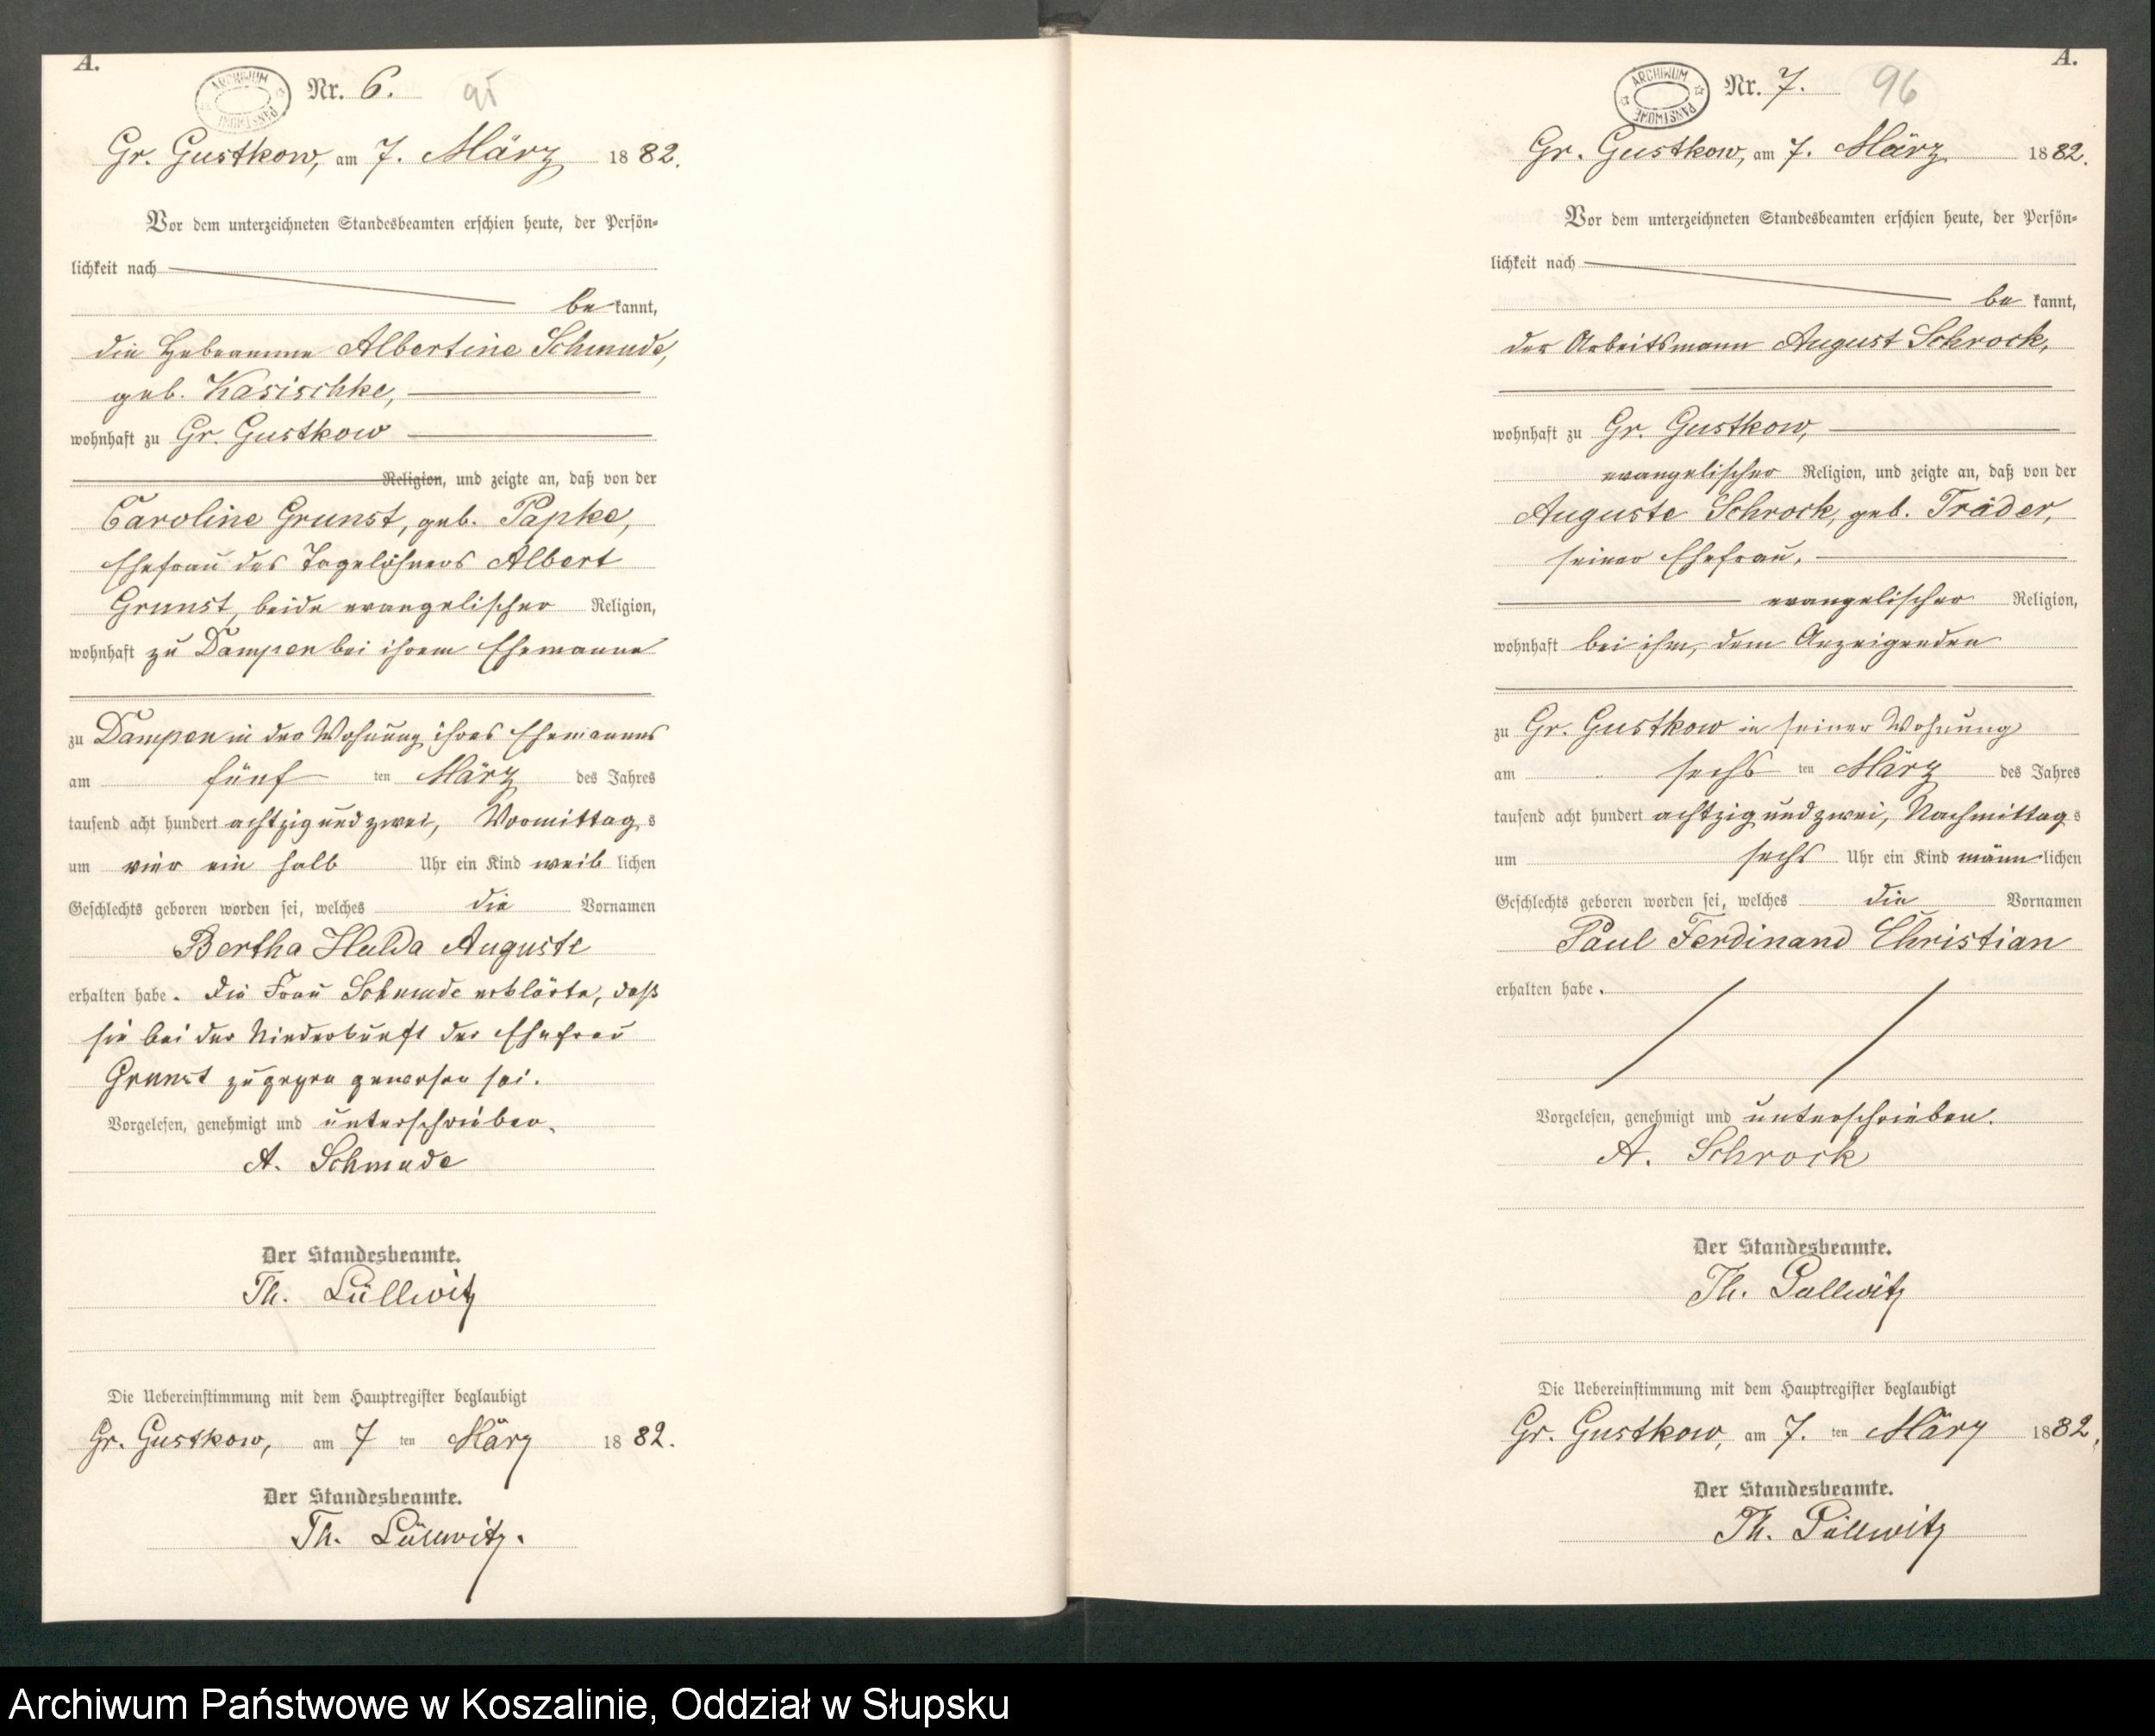 A.
ARCHIWUM PAŃSTWOWE
Nr. 6.
95
Gr. Gustkow, am 7. März 1882.
Vor dem unterzeichneten Standesbeamten erschien heute, der Persön-
lichkeit nach
be kannt,
die Hebeamme Albertine Schmude,
geb. Kasischke,
wohnhaft zu Gr. Gustkow
Religion, und zeigte an, daß von der
Caroline Grunst, geb. Papke,
Ehefrau des Tagelöhners Albert
Grunst, beide evangelischer Religion,
wohnhaft zu Dampen bei ihrem Ehemanne
zu Dampen in der Wohnung ihres Ehemannes
am fünf ten März des Jahres
tausend acht hundert achtzig und zwei, Vormittags
um vier ein halb Uhr ein Kind weib lichen
Geschlechts geboren worden sei, welches die Vornamen
Bertha Hulda Auguste
erhalten habe. Die Frau Schmude erklärte, daß
sie bei der Niederkunft der Ehefrau
Grunst zugegen gewesen sei.
Vorgelesen, genehmigt und unterschrieben.
A. Schmude
Der Standesbeamte.
Th.
Die Uebereinstimmung mit dem Hauptregister beglaubigt
Gr. Gustkow, am 7 ten März 1882.
Der Standesbeamte.
Th.
A.
ARCHIWUM PAŃSTWOWE
Nr. 7.
96
Gr. Gustkow, am 7. März 1882.
Vor dem unterzeichneten Standesbeamten erschien heute, der Persön-
lichkeit nach
be kannt,
der Arbeitsmann August Schrock,
wohnhaft zu Gr. Gustkow,
evangelischer Religion, und zeigte an, daß von der
Auguste Schrock, geb. Träder,
seiner Ehefrau,
evangelischer Religion,
wohnhaft bei ihm, dem Anzeigenden
zu Gr. Gustkow in seiner Wohnung
am sechs ten März des Jahres
tausend acht hundert achtzig und zwei, Nachmittags
um sechs Uhr ein Kind männ lichen
Geschlechts geboren worden sei, welches die Vornamen
Paul Ferdinand Christian
erhalten habe.
Vorgelesen, genehmigt und unterschrieben.
A. Schrock
Der Standesbeamte.
Th.
Die Uebereinstimmung mit dem Hauptregister beglaubigt
Gr. Gustkow, am 7. ten März 1882.
Der Standesbeamte.
Th.
Archiwum Państwowe w Koszalinie, Oddział w Słupsku